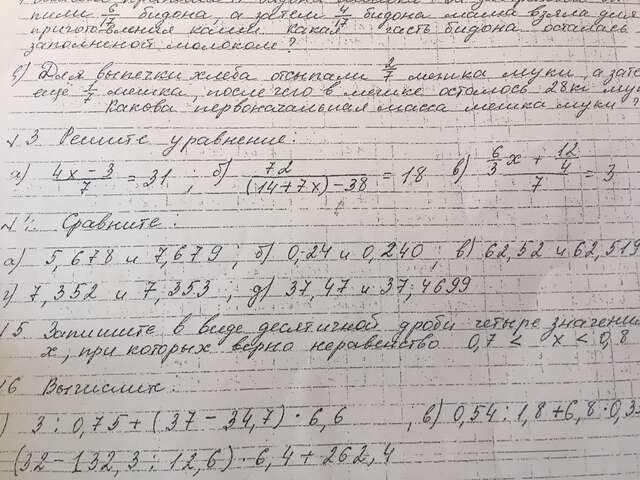 пили 1/6 бидона, а затем 4/17 бидона мама взяла для
приготовления каши. Какая часть бидона осталась
заполненной молоком?
в) Для выпечки хлеба отсыпали мешка муки, а зат
еще 1/7 мешка, после чего в мешке осталось 28 кг му
Какова первоначальная масса мешка муки
№3 Решите уравнение:
а) (4x-3)/7 = 31; б) 72/((14+7x)-38) = 18 в) 6/3 x + 12/4 = 3
7
Сравните:
а) 5,678 и 7,679; б) 0,24 и 0,240; в) 62,52 и 62,519
г) 7,352 и 7,353; д) 37,47 и 37,4699
15 Запишите в виде десятичной дроби четыре значения
x, при которых верно неравенство 0,7 < x < 0,8
16 Вычислим.
) 3 : 0,75 + (37 - 34,7) · 6,6 , б) 0,54 : 1,8 + 6,8 · 0,3
(92 - 132,3 : 12,6) · 6,4 + 262,4